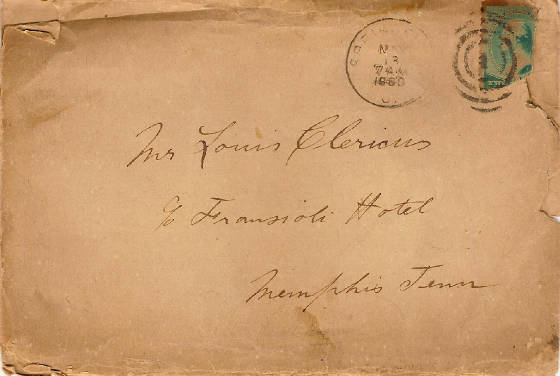 13
7 AM
Mr Louis Clericus
c/o Fransioli Hotel
Memphis Tenn